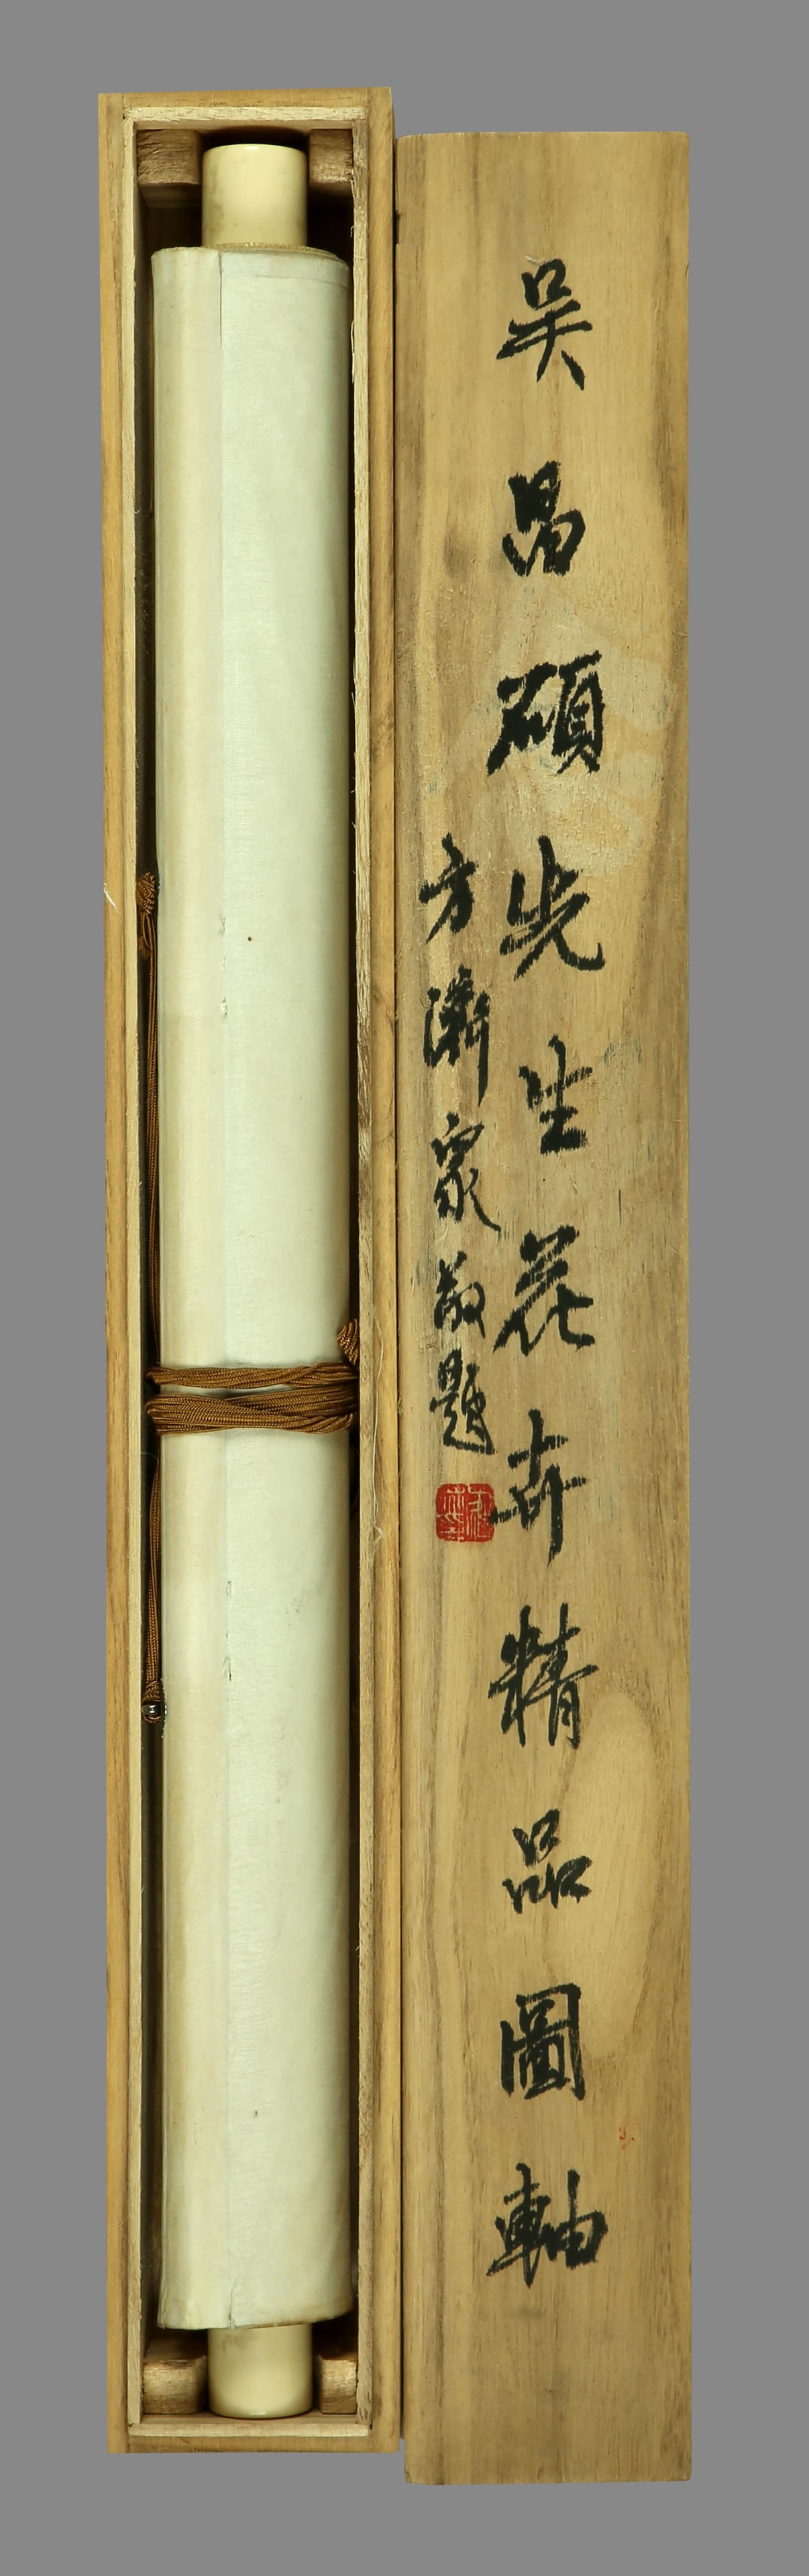 吳昌碩先生花卉精品圖軸
方濟眾敬題